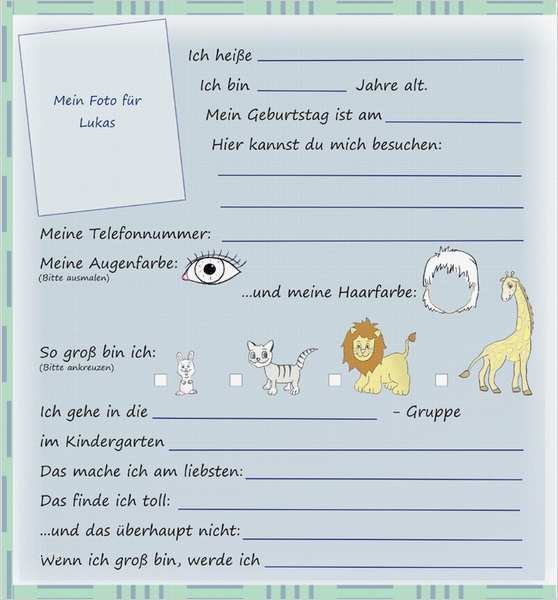 Mein Foto für
Lukas
Ich heiße
Ich bin Jahre alt.
Mein Geburtstag ist am
Hier kannst du mich besuchen:
Meine Telefonnummer:
Meine Augenfarbe:
(Bitte ausmalen)
...und meine Haarfarbe:
So groß bin ich:
(Bitte ankreuzen)
Ich gehe in die - Gruppe
im Kindergarten
Das mache ich am liebsten:
Das finde ich toll:
...und das überhaupt nicht:
Wenn ich groß bin, werde ich